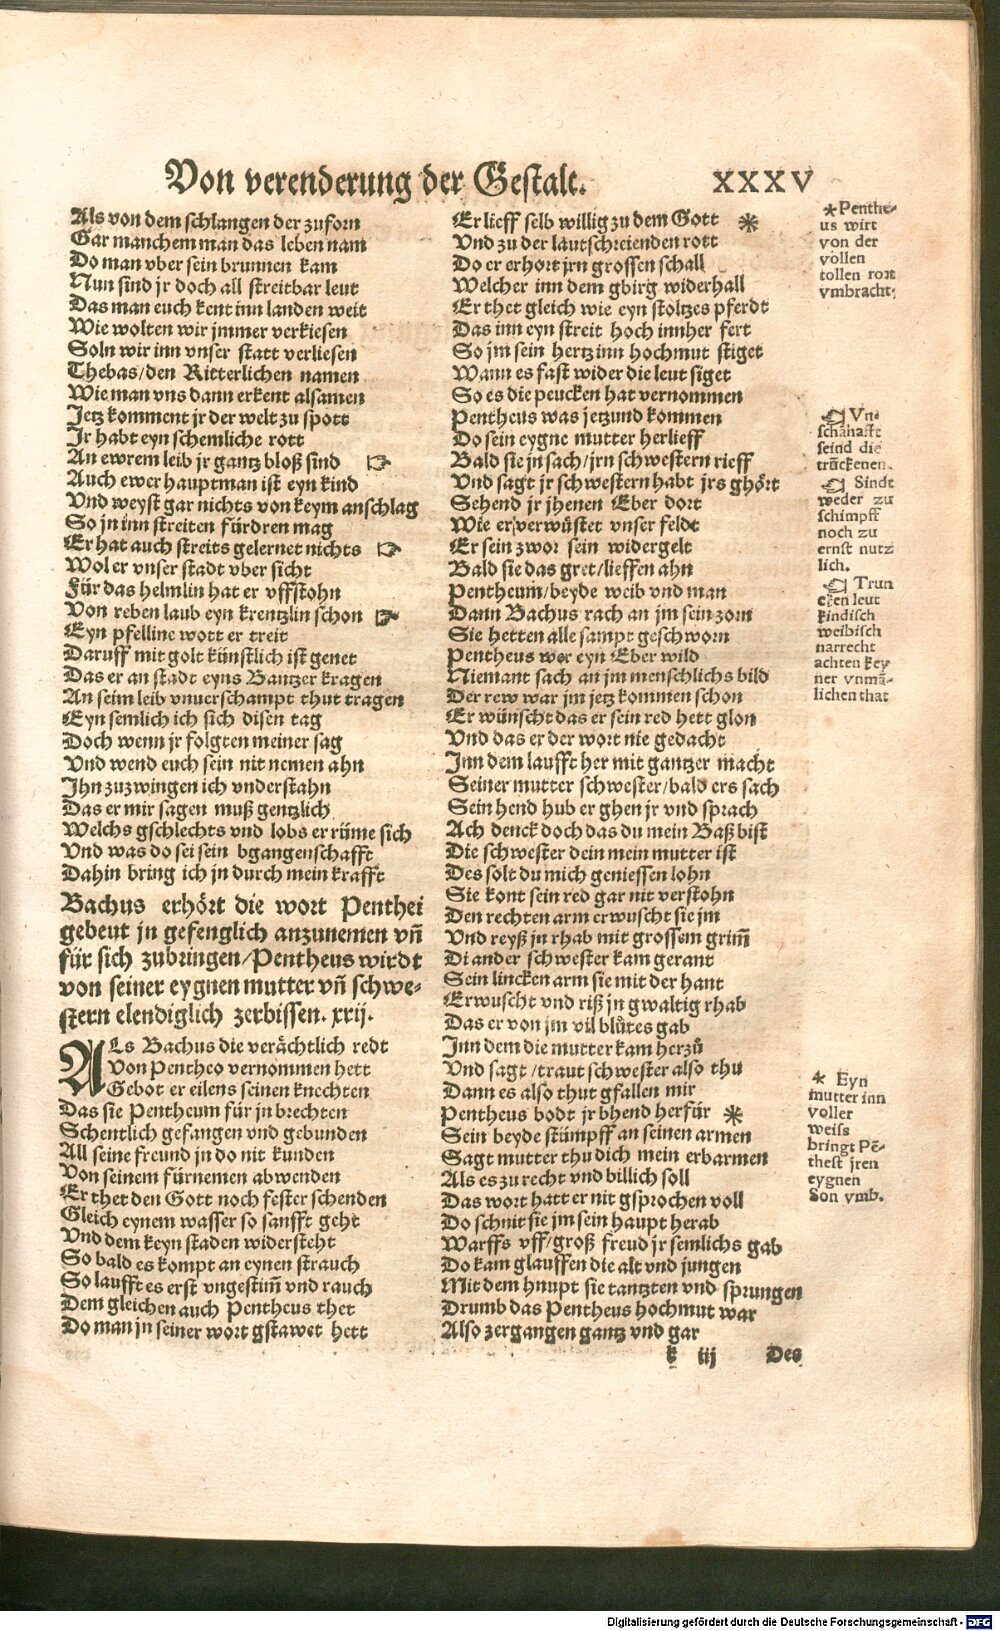 Von verenderung der Gestalt. XXXV
Als von dem schlangen der zuforn
Gar manchem man das leben nam
Do man vber sein brunnen kam
Nun sind jr doch all streitbar leut
Das man euch kent inn landen weit
Wie wolten wir jmmer verkiesen
Soln wir inn vnser statt verliesen
Thebas/den Ritterlichen namen
Wie man vns dann erkent alsamen
Jetz komment jr der welt zu spott
Jr habt eyn schemliche rott
An ewrem leib jr gantz bloß sind ☞
Auch ewer hauptman ist eyn kind
Vnd weyst gar nichts von keym anschlag
So jn inn streiten fürdren mag
Er hat auch streits gelernet nichts ☞
Wol er vnser stadt vber sicht
Für das helmlin hat er vffstohn
Von reben laub eyn krentzlin schon ☞
Eyn pfelline wott er treit
Daruff mit golt künstlich ist genet
Das er an stadt eyns Bantzer kragen
An seim leib vnuerschampt thut tragen
Eyn semlich ich sich disen tag
Doch wenn jr folgten meiner sag
Vnd wend euch sein nit nemen ahn
Ihn zuzwingen ich vnderstahn
Das er mir sagen muß gentzlich
Welchs gschlechts vnd lobs er rüme sich
Vnd was do sei sein bgangenschafft
Dahin bring ich jn durch mein krafft
Bachus erhört die wort Penthei
gebeut jn gefenglich anzunemen vñ
für sich zubringen/Pentheus wirdt
von seiner eygnen mutter vñ schwe-
stern elendiglich zerbissen. xxij.
ALs Bachus die verächtlich redt
Von Pentheo vernommen hett
Gebot er eilens seinen knechten
Das sie Pentheum für jn brechten
Schentlich gefangen vnd gebunden
All seine freund jn do nit kunden
Von seinem fürnemen abwenden
Er thet den Gott noch fester schenden
Gleich eynem wasser so sansft geht
Vnd dem keyn staden widersteht
So bald es kompt an eynen strauch
So laufft es erst vngestim̃ vnd rauch
Dem gleichen auch Pentheus thet
Do man jn seiner wort gstawet hett
Er lieff selb willig zu dem Gott *
Vnd zu der lautschreienden rott
Do er erhort jrn grossen schall
Welcher inn dem gbirg widerhall
Er thet gleich wie eyn stoltzes pferdt
Das inn eyn streit hoch innher fert
So jm sein hertz inn hochmut stiget
Wann es fast wider die leut siget
So es die peucken hat vernommen
Pentheus was jetzund kommen
Do sein eygne mutter herlieff
Bald sie jn sach/jrn schwestern rieff
Vnd sagt jr schwestern habt jrs ghört
Sehend jr jhenen Eber dort
Wie er verwüstet vnser feldt
Er sein zwor sein widergelt
Bald sie das gret/lieffen ahn
Pentheum/beyde weib vnd man
Dann Bachus rach an jm sein zorn
Sie hetten alle sampt geschworn
Pentheus wer eyn Eber wild
Niemant sach an jm menschlichs bild
Der rew war jm jetz kommen schon
Er wünscht das er sein red hett glon
Vnd das er der wort nie gedacht
Inn dem laufft her mit gantzer macht
Seiner mutter schwester/bald ers sach
Sein hend hub er ghen jr vnd sprach
Ach denck doch das du mein Baß bist
Die schwester dein mein mutter ist
Des solt du mich geniessen lohn
Sie kont sein red gar nit verstohn
Den rechten arm erwuscht sie jm
Vnd reyß jn rhab mit grossem grim̃
Di ander schwester kam gerant
Sein lincken arm sie mit der hant
Erwuscht vnd riß jn gwaltig rhab
Das er von jm vil blůtes gab
Inn dem die mutter kam herzů
Vnd sagt/traut schwester also thu
Dann es also thut gfallen mir
Pentheus bodt jr bhend herfür *
Sein beyde stümpff an seinen armen
Sagt mutter thu dich mein erbarmen
Als es zu recht vnd billich soll
Das wort hatt er nit gsprochen voll
Do schnit sie jm sein haupt herab
Warffs vff/groß freud jr semlichs gab
Do kam glauffen die alt vnd jungen
Mit dem hnupt sie tantzten vnd sprungen
Drumb das Pentheus hochmut war
Also zergangen gantz vnd gar
k iij Des
*Penthe-
us wirt
von der
vollen
tollen rott
vmbracht.
☜ Vn-
schāhafft
seind die
trūckenen.
☜ Sindt
weder zu
schimpff
noch zu
ernst nutz
lich.
☜ Trun
cken leut
kindisch
weibisch
narrecht
achten key
ner vnmā-
lichen that
* Eyn
mutter inn
voller
weiss
bringt Pē-
thest jren
eygnen
Son vmb.
Digitalisierung gefördert durch die Deutsche Forschungsgemeinschaft - DFG